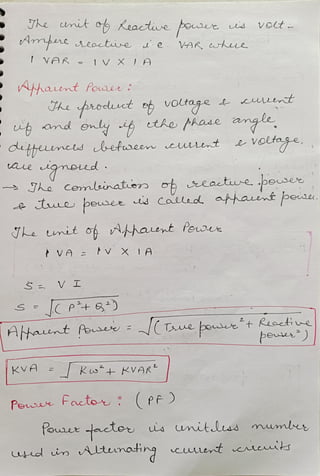 The unit of Reactive power is volt-
Ampere reactive i.e VAR where
1 VAR = 1V X 1A
Apparent Power :
The product of voltage & current
if and only if the phase angle
differences between current & voltage.
are ignored.
→ The combination of reactive power
& true power is called apparent power.
The unit of Apparent Power
1 VA = 1V X 1A
S = V I
S = √(P² + Q²)
Apparent Power = √(True power² + Reactive
power²)
KVA = √KW² + KVAR²
Power Factor : (PF)
Power factor is unitless number
used in Alternating current circuits